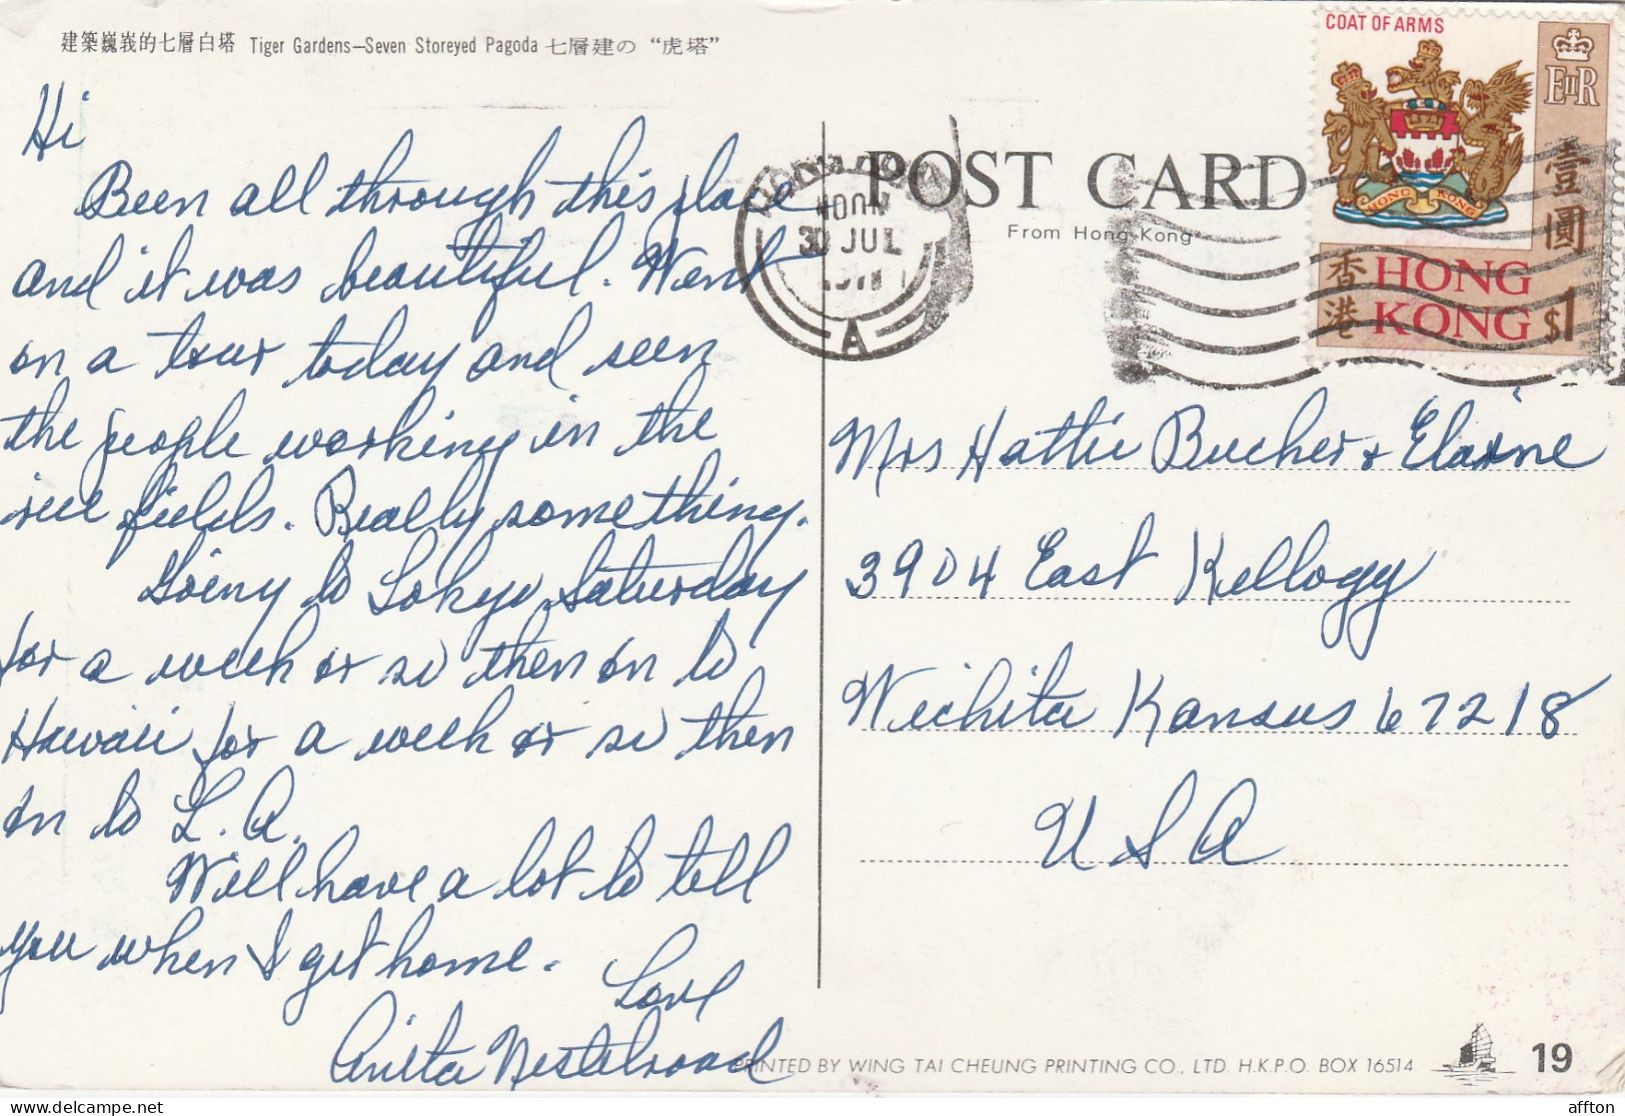 建築巍峩的七層白塔 Tiger Gardens—Seven Storeyed Pagoda 七層建の “虎塔”
Hi
Been all through this place
and it was beautiful. Went
on a tour today and seen
the people working in the
rice fields. Really something.
Going to Tokyo Saturday
for a week or so then on to
Hawaii for a week or so then
on to L.A.
Will have a lot to tell
you when I get home.
Love
Anita Nestelroad
POST CARD
From Hong Kong
NOON
30 JUL
A
COAT OF ARMS
EIIR
HONG KONG
壹圓
香港
HONG
KONG
$1
Mrs Hattie Bucher & Elaine
3904 East Kellogg
Wichita Kansas 67218
USA
PRINTED BY WING TAI CHEUNG PRINTING CO., LTD. H.K.P.O. BOX 16514
19
affton